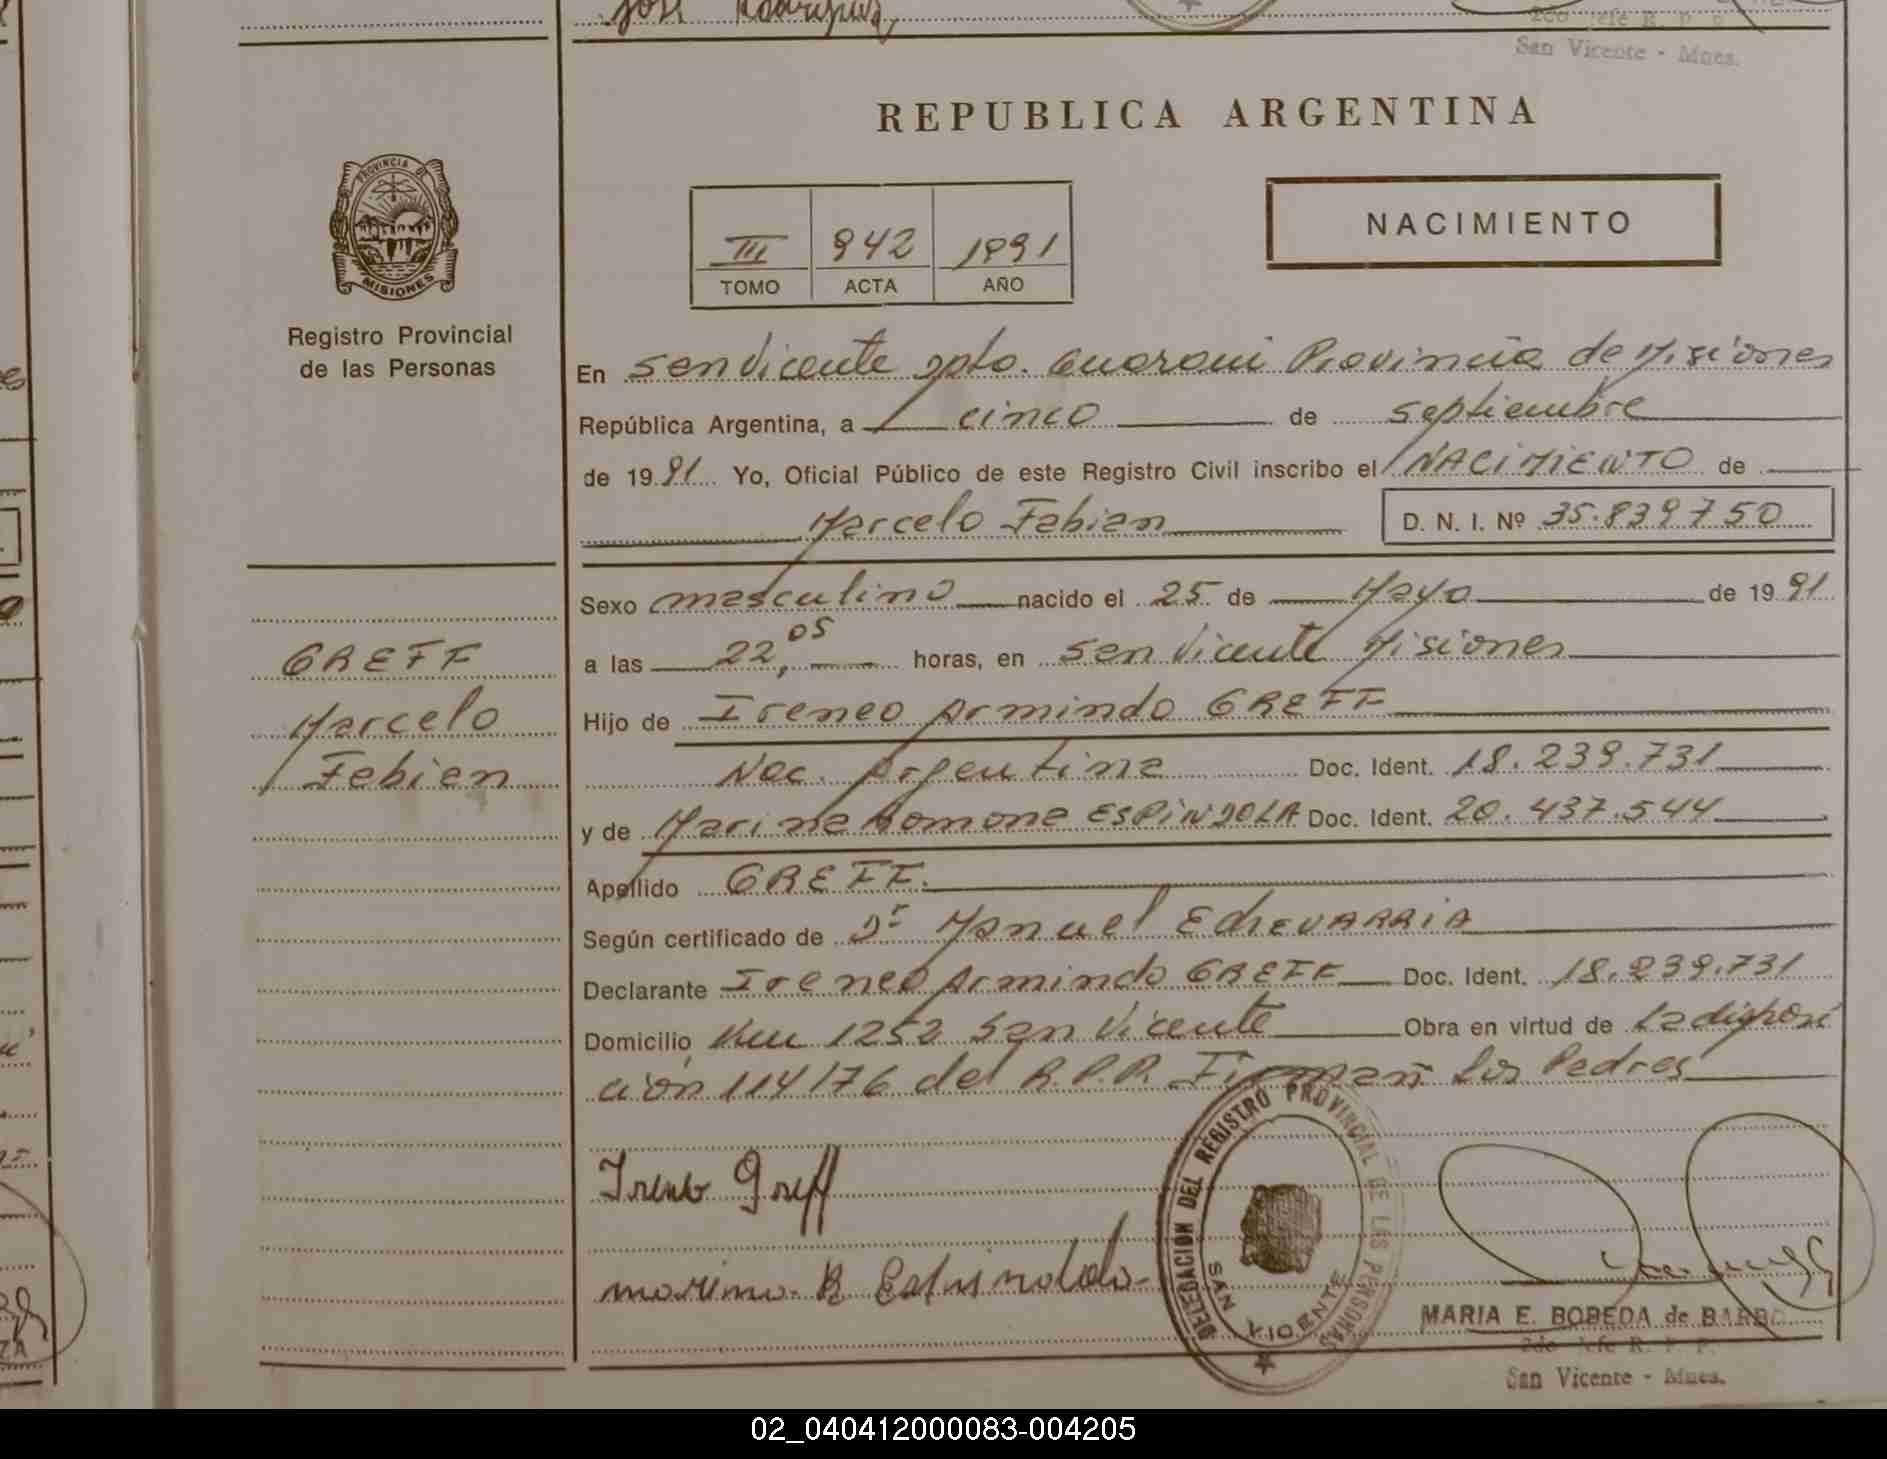 José Rodriguez
2do Jefe R. P. P.
San Vicente - Mnes.
REPUBLICA ARGENTINA
PROVINCIA DE
MISIONES
Registro Provincial
de las Personas
III 942 1991
TOMO ACTA AÑO
NACIMIENTO
En San Vicente Dpto. Guarani Provincia de Misiones
República Argentina, a cinco de septiembre
de 1991 Yo, Oficial Público de este Registro Civil inscribo el NACIMIENTO de
Marcelo Fabian D. N. I. Nº 35.839750
Sexo masculino nacido el 25 de Mayo de 1991
a las 22,05 horas, en San Vicente Misiones
Hijo de Ireneo Armindo GREFF
Nac. Argentina Doc. Ident. 18.239.731
y de Marina Ramona ESPINDOLA Doc. Ident. 20.437.544
Apellido GREFF.
Según certificado de Dr Manuel EchEVARRIA
Declarante Ireneo Armindo GREFF Doc. Ident. 18.239.731
Domicilio Km 1252 San Vicente Obra en virtud de La disposi
ción 114/76 del R.P.P. Firman Los Padres
GREFF
Marcelo
Fabian
Ireneo Greff
marina R Espindola
DELEGACION DEL REGISTRO PROVINCIAL DE LAS PERSONAS
SAN VICENTE
MARIA E. BOBEDA de BARBO
2do Jefe R. P. P.
San Vicente - Mnes.
02_040412000083-004205